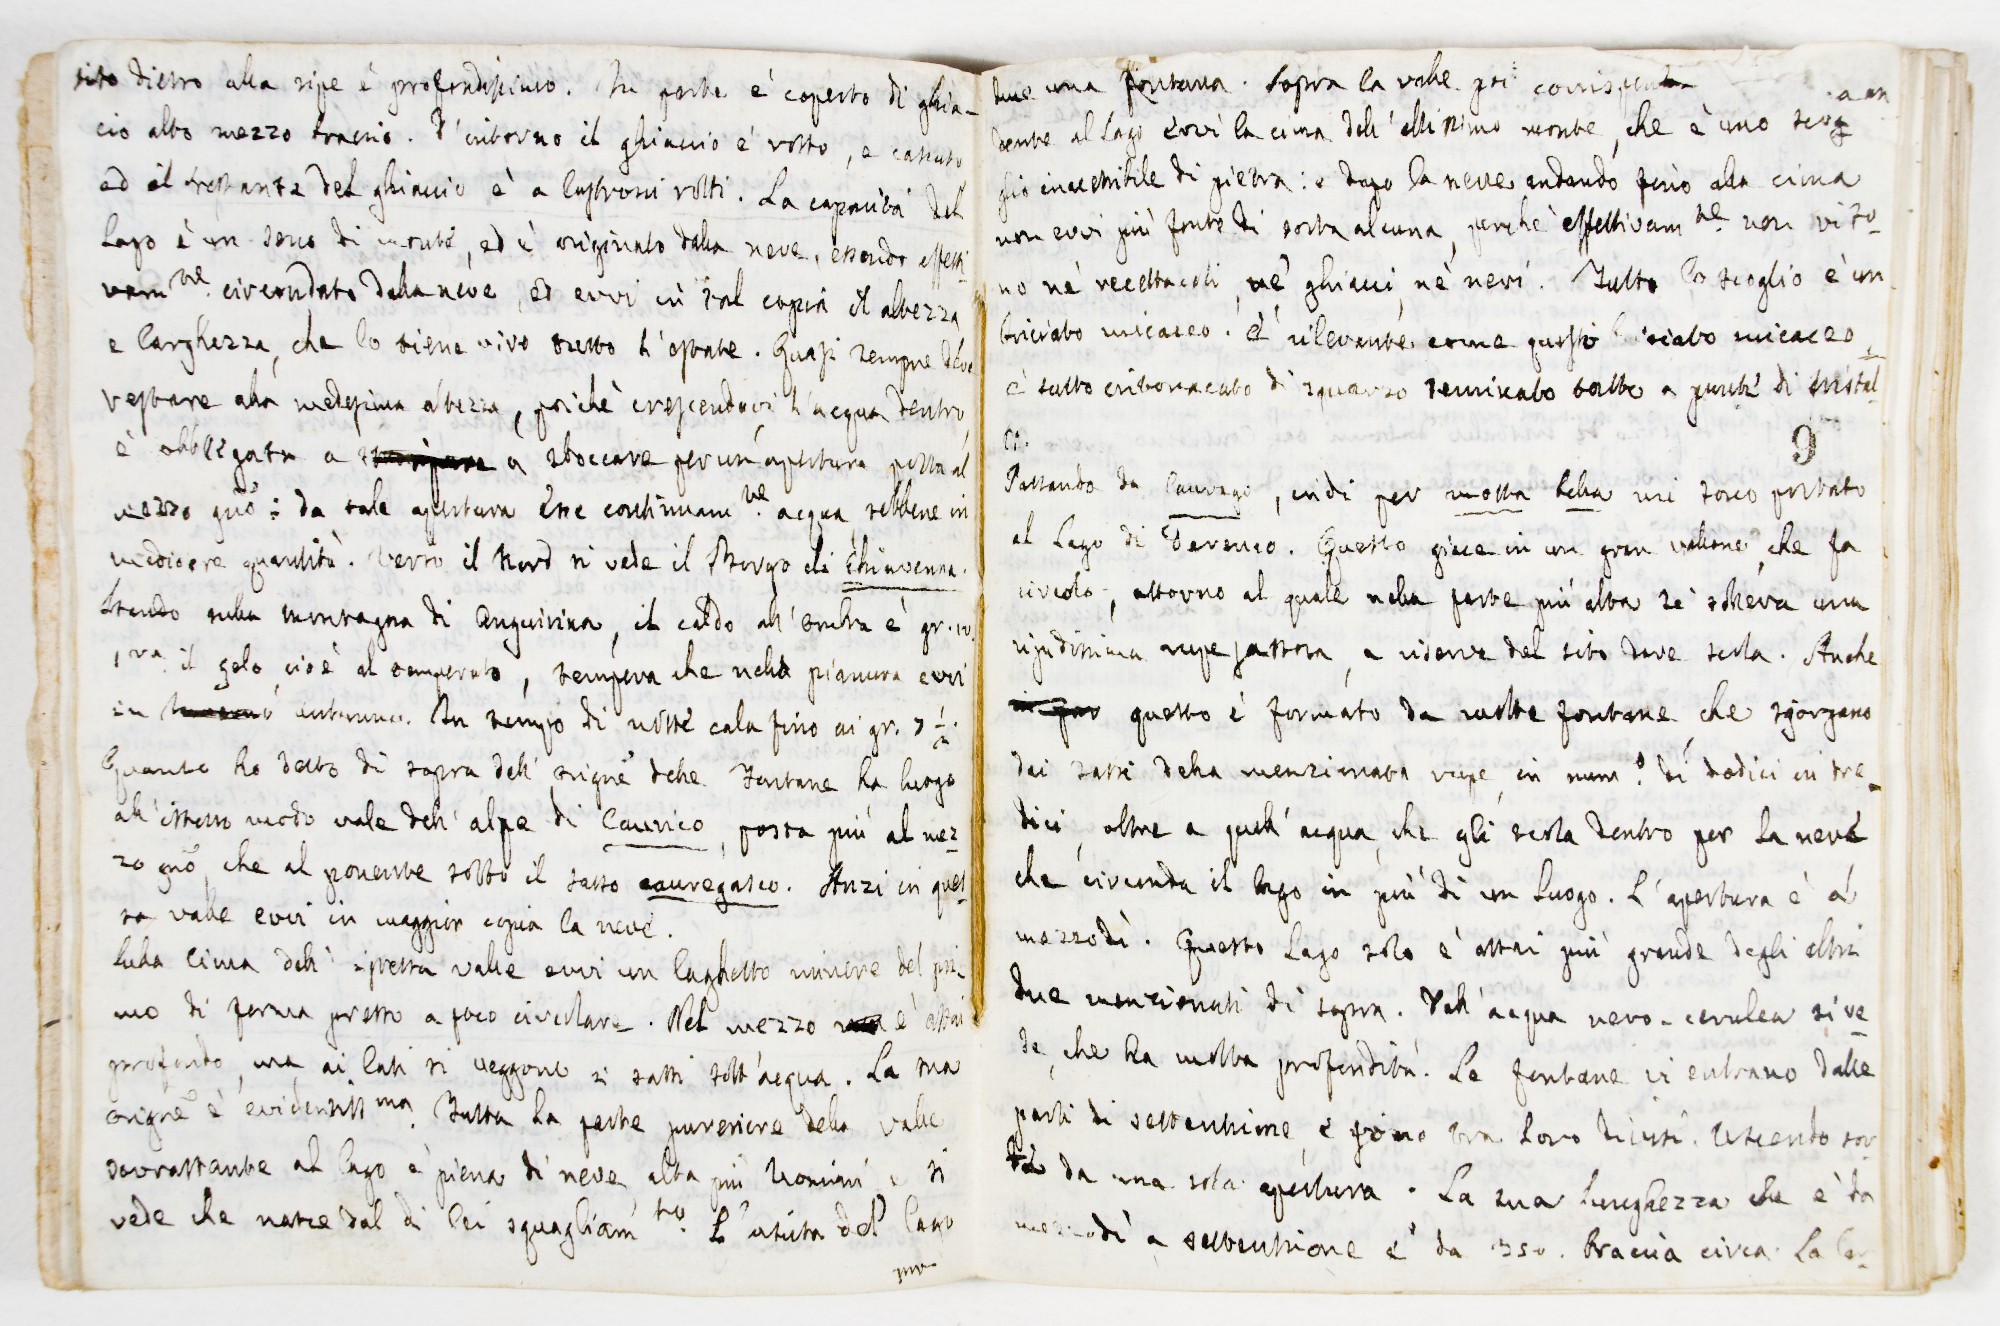 sito dietro alla ripe è profondissimo. In parte è coperto di ghia-
cio alto mezzo braccio. D'intorno il ghiaccio è rotto, e
ed il restante del ghiaccio è a lastroni rotti. La capacità del
Lago è un seno di monte, ed è originato dalla neve, essendo effetti
vam.te circondato dalla neve, ed evvi in tal copia d'altezza
e larghezza, che lo tiene vivo tutto l'estate. Quasi sempre deve
restare alla medesima altezza, poichè crescendovi l'acqua dentro
è obbligata a a sboccare per un'apertura posta al
mezzo giorno: da tale apertura esce continuam.te acqua, sebbene in
mediocre quantità. Verso il Nord si vede il Borgo di Chiavenna.
Stando sulla montagna di Anguirina, il caldo all'ombra è gr. 10.
il gelo, cioè al temperato, tempera che nella pianura evvi
in autunno. In tempo di notte cala fino ai gr. 7 1/2.
Quanto ho detto di sopra dell'origne delle Fontane ha luogo
all'istesso modo nale dell'alpe di Caurico, posta più al mez-
zo gno, che al ponente sotto il sasso cauregasco. Anzi in ques-
ta valle evvi in maggior copia la neve.
Sulla cima dell'istessa valle evvi un laghetto minore del pri-
mo di forma presso a poco circolare. Nel mezzo è assai
profondo, ma ai lati si veggono i sassi sott'acqua. La sua
origne è evidentiss.ma. Tutta la parte superiore della valle
sovrastante al lago è piena di neve alta più uomini, e si
vede che nasce dal di lei squagliam.to. L'uscita del lago
due una fontana. Sopra la valle poi corrispon
dente al Lago evvi la cima dell'altissimo monte, che è uno scog
glio inaccessibile di pietra: e dopo la neve andando fino alla cima
non evvi più fonte di sorta alcuna, perchè effettivam.te non vi so-
no nè recettacoli, nè ghiacci, nè nevi. Tutto lo scoglio è un
micaceo. È rilevante come questo micaceo
è tutto intonacato di squarzo tutto a punte di cristal-
li.
9
Passando da Cauregi, indi per motta bella mi sono portato
al Lago di Darengo. Questo giace in un gran vallone, che fa
circolo, attorno al quale nella parte più alta si solleva una
ripidissima rupe sassosa, a riserva del sito dove scola. Anche
questo è formato da molte fontane, che sgorgano
dai sassi della menzionata rupe, in num.o di dodici in tre-
dici, oltre a quell'acqua, che gli scola dentro per la neve
che circonda il lago in più di un luogo. L'apertura è a
mezzodì. Questo Lago solo è assai più grande degli altri
due menzionati di sopra. Dall'acqua nero-cerulea si ve-
de, che ha molta profondità. Le fontane vi entrano dalle
parti di settentrione, e sono tra loro divise. Uscendo
da una sola apertura. La sua lunghezza che è da
mezzodì a settentrione è da 350. braccia circa. La lar-